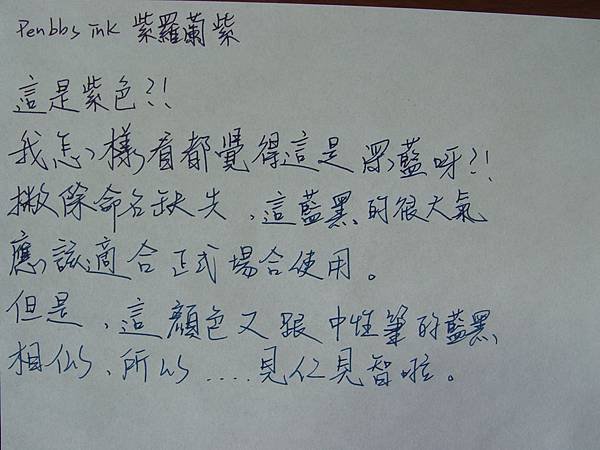 Penbbs ink 紫羅蘭紫
這是紫色?!
我怎樣看都覺得這是深藍呀?!
撇除命名缺失,這藍黑的很大氣
應該適合正式場合使用。
但是,這顏色又跟中性筆的藍黑
相似、所以....見仁見智啦。